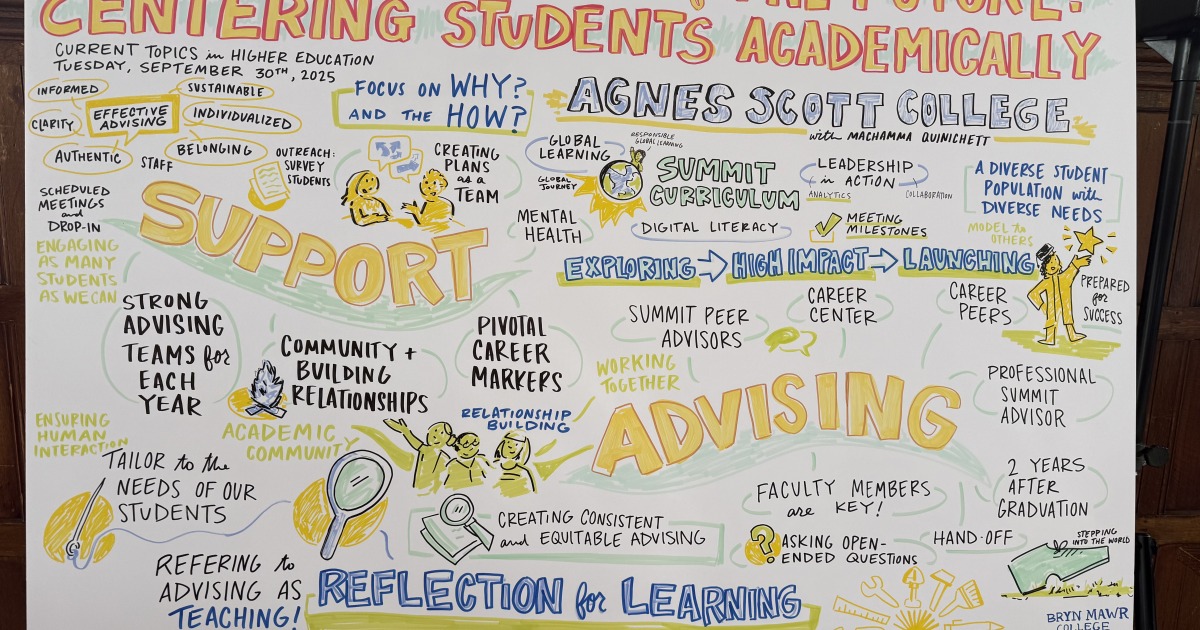 THE FUTURE:
CENTERING STUDENTS ACADEMICALLY
CURRENT TOPICS in HIGHER EDUCATION
TUESDAY, SEPTEMBER 30TH, 2025
INFORMED
SUSTAINABLE
CLARITY
EFFECTIVE
ADVISING
INDIVIDUALIZED
AUTHENTIC
BELONGING
STAFF
OUTREACH:
SURVEY
STUDENTS
FOCUS ON WHY?
AND THE HOW?
CREATING
PLANS
as a
TEAM
AGNES SCOTT COLLEGE
with MACHAMMA QUINICHETT
GLOBAL
LEARNING
RESPONSIBLE
GLOBAL LEARNING
GLOBAL
JOURNEY
SUMMIT
CURRICULUM
LEADERSHIP
in ACTION
ANALYTICS
COLLABORATION
A DIVERSE STUDENT
POPULATION with
DIVERSE NEEDS
MENTAL
HEALTH
DIGITAL LITERACY
MEETING
MILESTONES
MODEL to
OTHERS
EXPLORING → HIGH IMPACT → LAUNCHING
PREPARED
for
SUCCESS
SCHEDULED
MEETINGS
and
DROP-IN
ENGAGING
AS MANY
STUDENTS
AS WE CAN
SUPPORT
STRONG
ADVISING
TEAMS for
EACH
YEAR
COMMUNITY +
BUILDING
RELATIONSHIPS
PIVOTAL
CAREER
MARKERS
SUMMIT PEER
ADVISORS
CAREER
CENTER
CAREER
PEERS
WORKING
TOGETHER
ADVISING
PROFESSIONAL
SUMMIT
ADVISOR
RELATIONSHIP
BUILDING
ENSURING
HUMAN
INTERACTION
ACADEMIC
COMMUNITY
TAILOR to the
NEEDS OF OUR
STUDENTS
CREATING CONSISTENT
and EQUITABLE ADVISING
FACULTY MEMBERS
are KEY!
2 YEARS
AFTER
GRADUATION
?
ASKING OPEN-
ENDED QUESTIONS
HAND-OFF
STEPPING
INTO THE WORLD
REFERING to
ADVISING AS
TEACHING!
REFLECTION for LEARNING
BRYN MAWR
COLLEGE